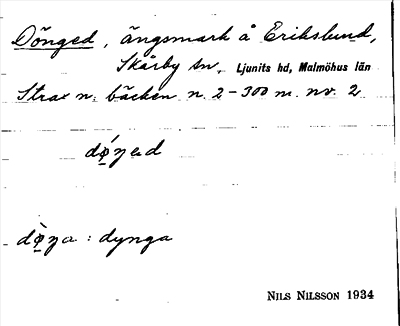 Dönged, ängsmark å Erikslund,
Skårby sn, Ljunits hd, Malmöhus län
Strax n. bäcken n. 2-300 m. nv. 2
dø̀ŋəd
dø̀ŋa : dynga
NILS NILSSON 1934